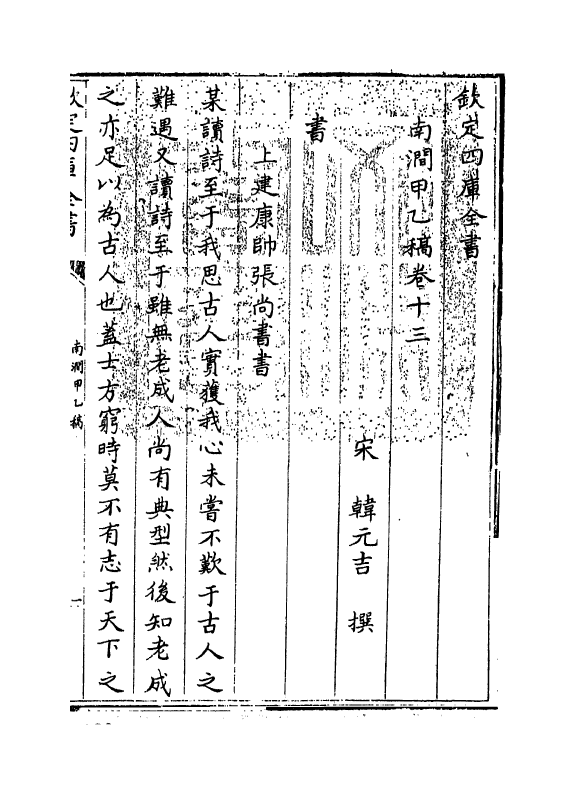 欽定四庫全書
南澗甲乙稿卷十三
宋 韓元吉 撰
書
上建康帥張尚書書
某讀詩至于我思古人實獲我心未嘗不歎于古人之
難遇又讀詩至于雖無老成人尚有典型然後知老成
之亦足以為古人也蓋士方窮時莫不有志于天下之
欽定四庫全書
南澗甲乙稿
一